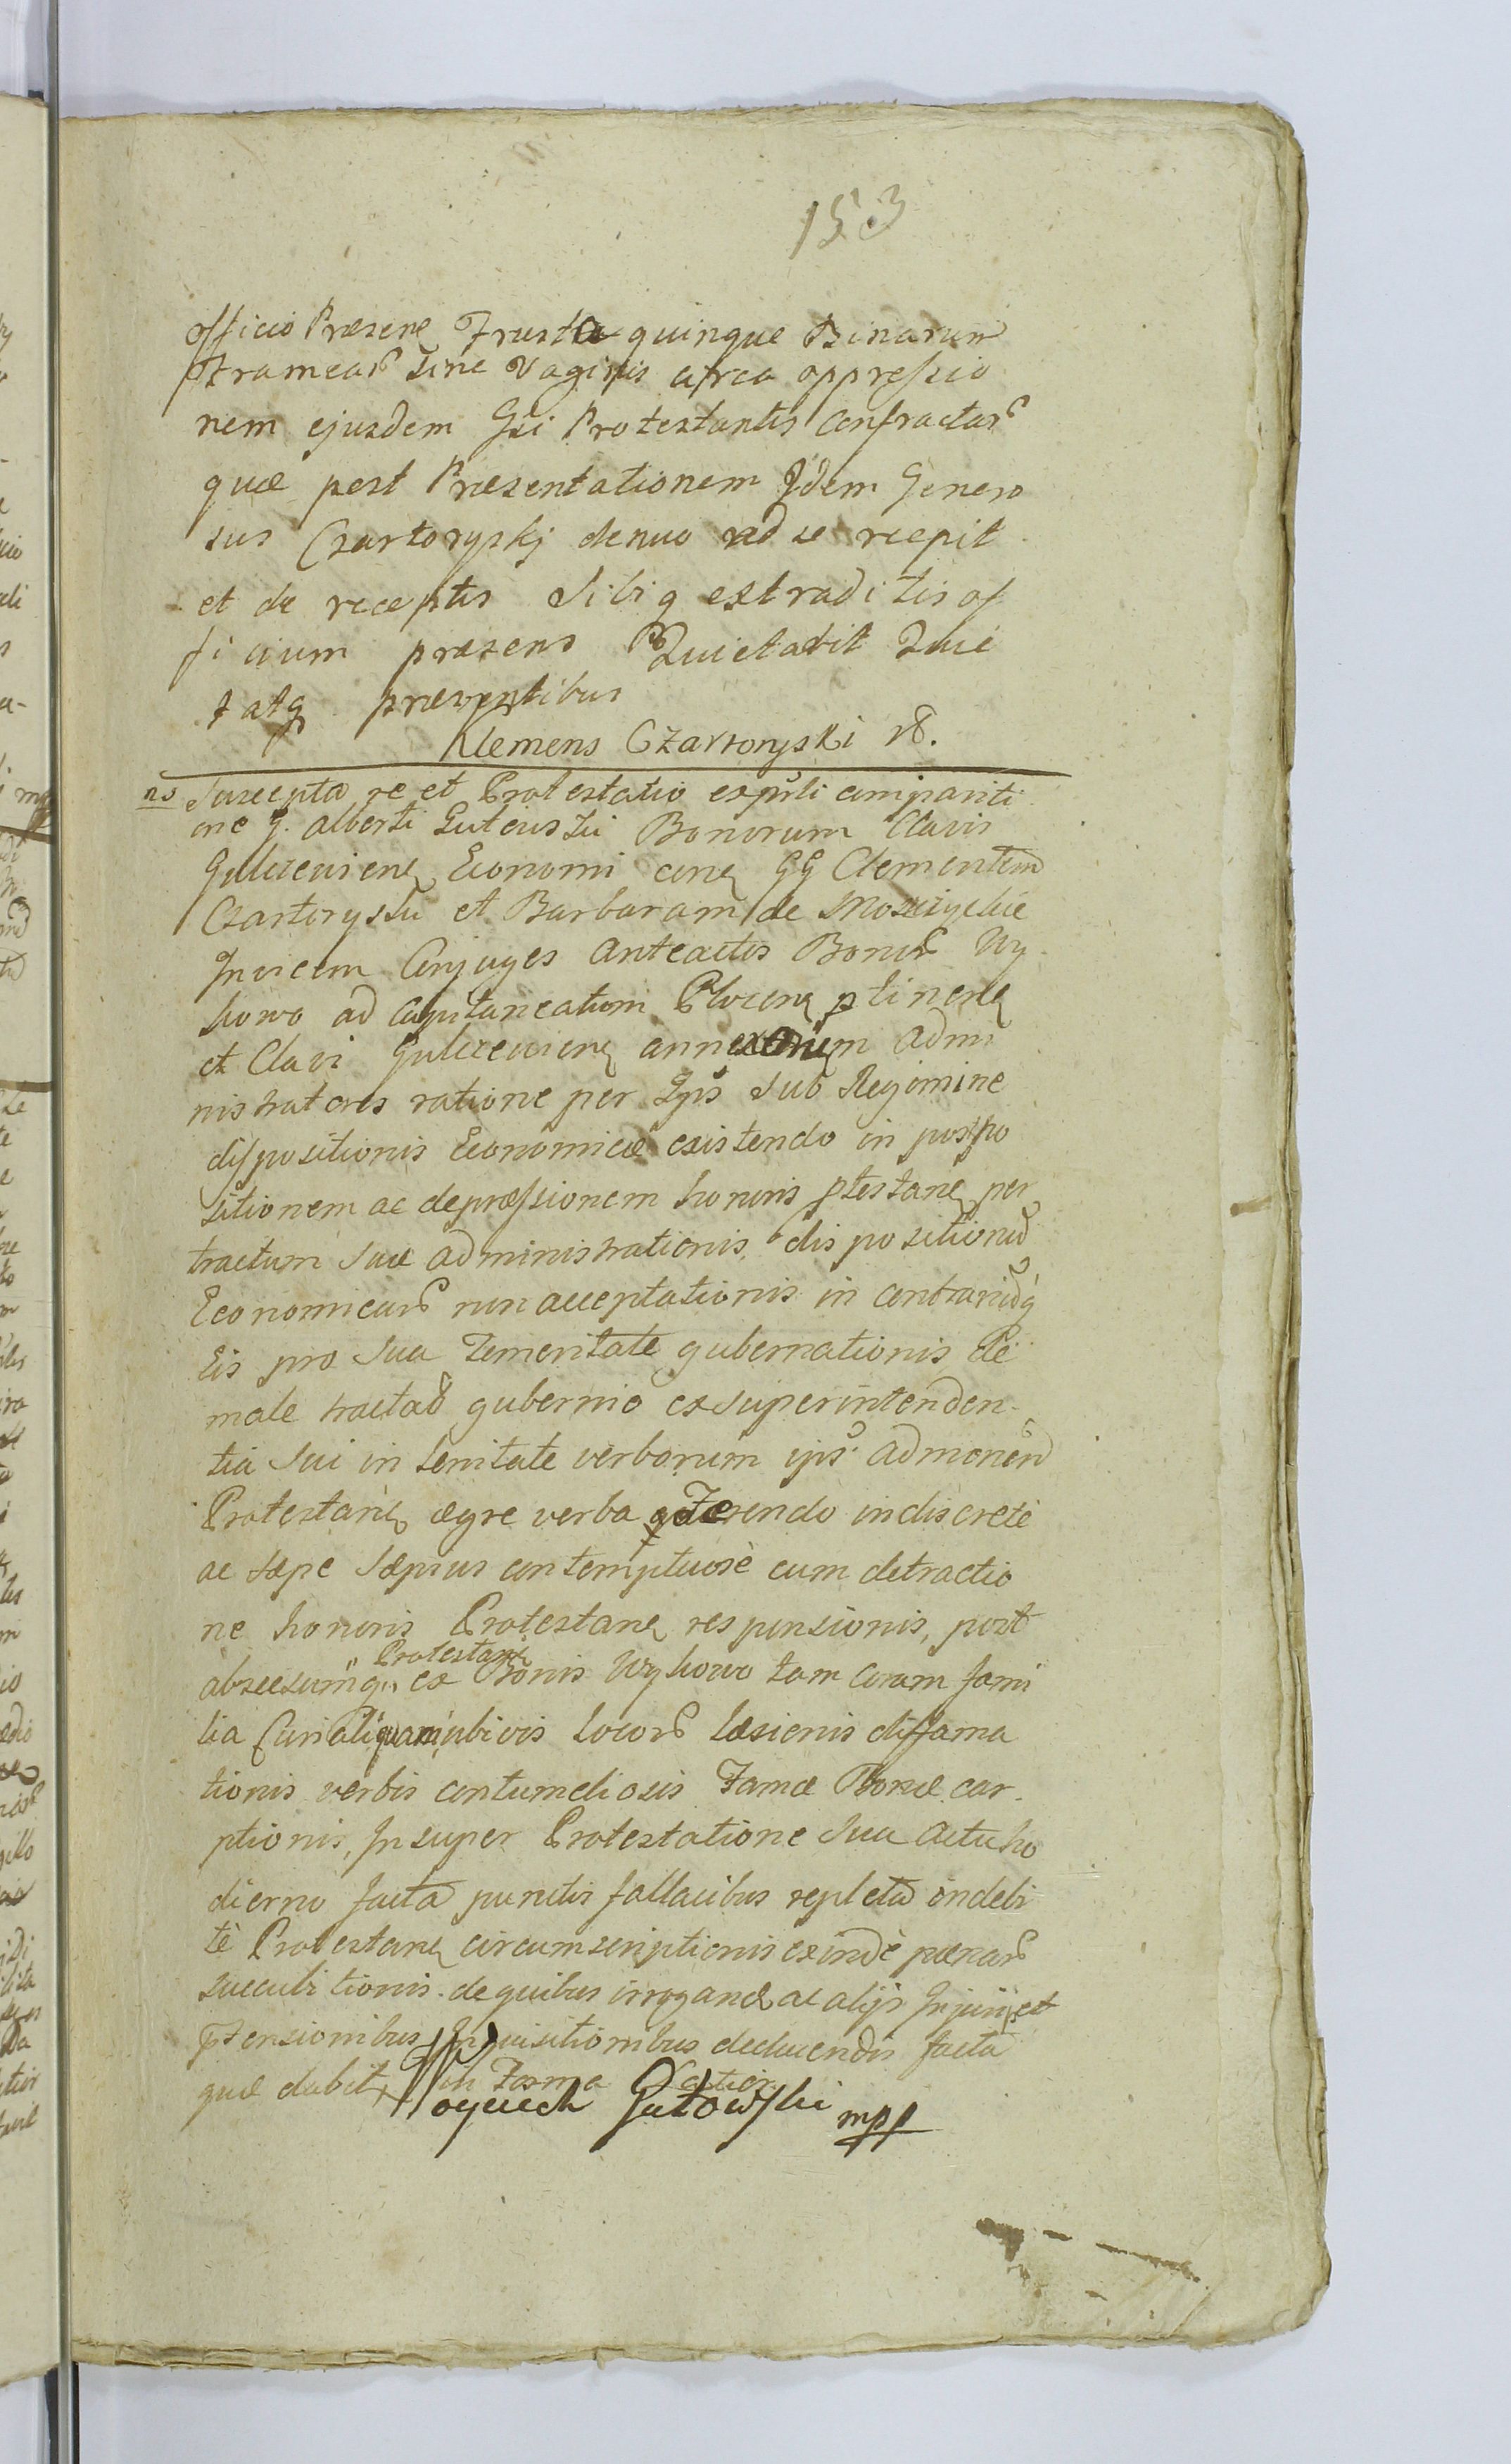 153
officio Præsenę Frusta quinque Binarum
Frameaꝝ sine Vaginis circa oppressio
nem ejusdem Gsi Protestantis Confractaꝝ
quæ post Præsentationem Idem Genero
sus Czartoryskj denuo ad se recepit
et de receptis Sibiq extraditis of
ficium præsens Quietavit Quie
tatq præsentibus
Klemens Czartoryski
ns Suscepta re et Protestatio expsli compariti
one G. Alberti Bonorum Clavis
Economi conę GG Clementem
et Barbaram de
Invicem Conjuges Anteactos Bonoꝝ Wy
howo ad Capitaneatum Plocenę ptinenę
et Clavi annexorum Admi
nistratores ratione per Ips sub Regimine
dispositionis Economicæ existendo in postpo
sitionem ac depræssionem honoris ptestanę per
tractum suæ administrationis dispositionū
Economicaꝝ non acceptationis in contrariūq
Eis pro sua Temeritate gubernationis
male tractaō gubernio ex superintenden-
tia sui in lenitate verborum ips admonenđ
Protestanę ægre verba ferendo indiscretè
ac sæpe sæpius contemptuosè cum detractio
ne honoris Protestanę responsionis, post
Protestanę
abscesumq ex Bonis Wyhowo tam coram fami
lia Curiali quam ubivis locoꝝ læsionis diffama
tionis verbis contumeliosis Famæ Bonæ car-
ptionis, Insuper Protestatione sua Actu ho
dierno facta punctis fallacibus repleta indebi
tè Protestanę circumscriptionis exindè pænaꝝ
succubitionis. de quibus irroganđ ac alijs Injurijs et
ptensionibus Inquisitionibus deducendis facta
quæ dabit, in Forma
Woyciech Gutowski mpp